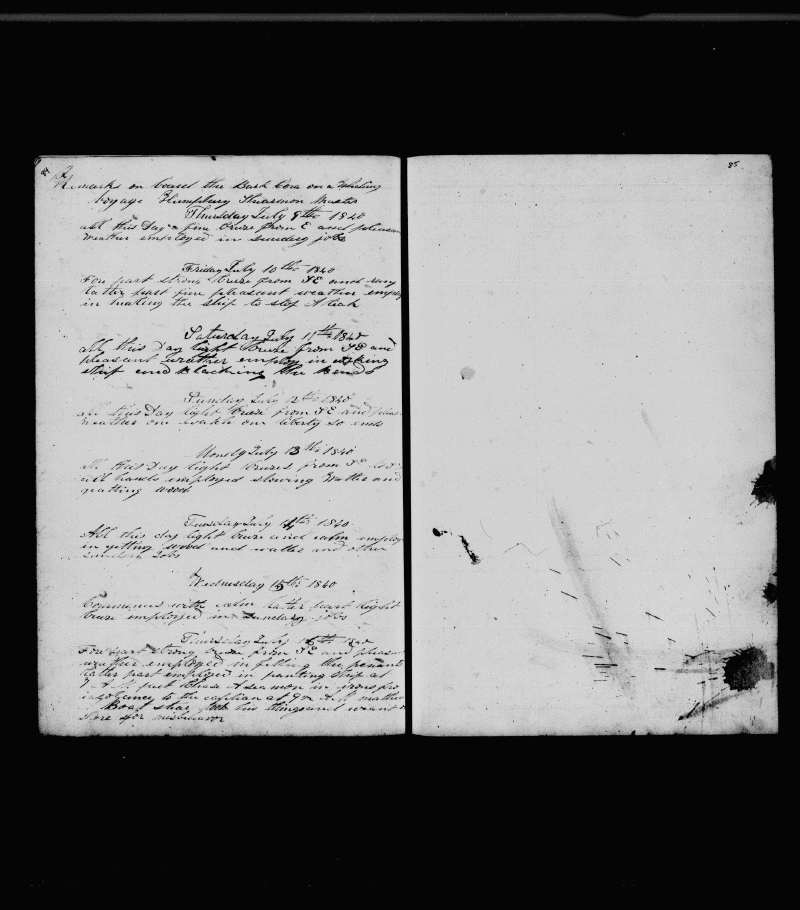 84
Remarks on board the Bark Cora on a Whaling
voyage Humphrey Master
Thursday July 9th 1840
all this Day a fine breze from E and pleasan
weather employed in sundery jobs
Friday July 10th 1840
Fore part strong breze from SE and
latter part fine pleasant weather employ
in heating the ship to stop A leak
Saturday July 11th 1840
all this Day light breze from SE and
pleasant weather employ in
ship and blacking the bends
Sunday July 12th 1840
all this Day light breze from SE and pleas
weather one watch on liberty
Monday July 13th 1840
all this Day light brezes from SE
all hands employed stowing watter and
gutting wood
Tuesday July 14th 1840
All this day light breze and calm employ
in getting wood and watter and other
jobs
Wednesday 15th 1840
Commences with calm latter part light
breze employed in Sundery jobs
Thursday July 16th 1840
Fore part strong breze from SE and pleasan
weather employed in fitting the
latter part employed in panting ship at
7 A.M. put A seamon in irons for
to the captian at 9 A.M.
Boat
for
85